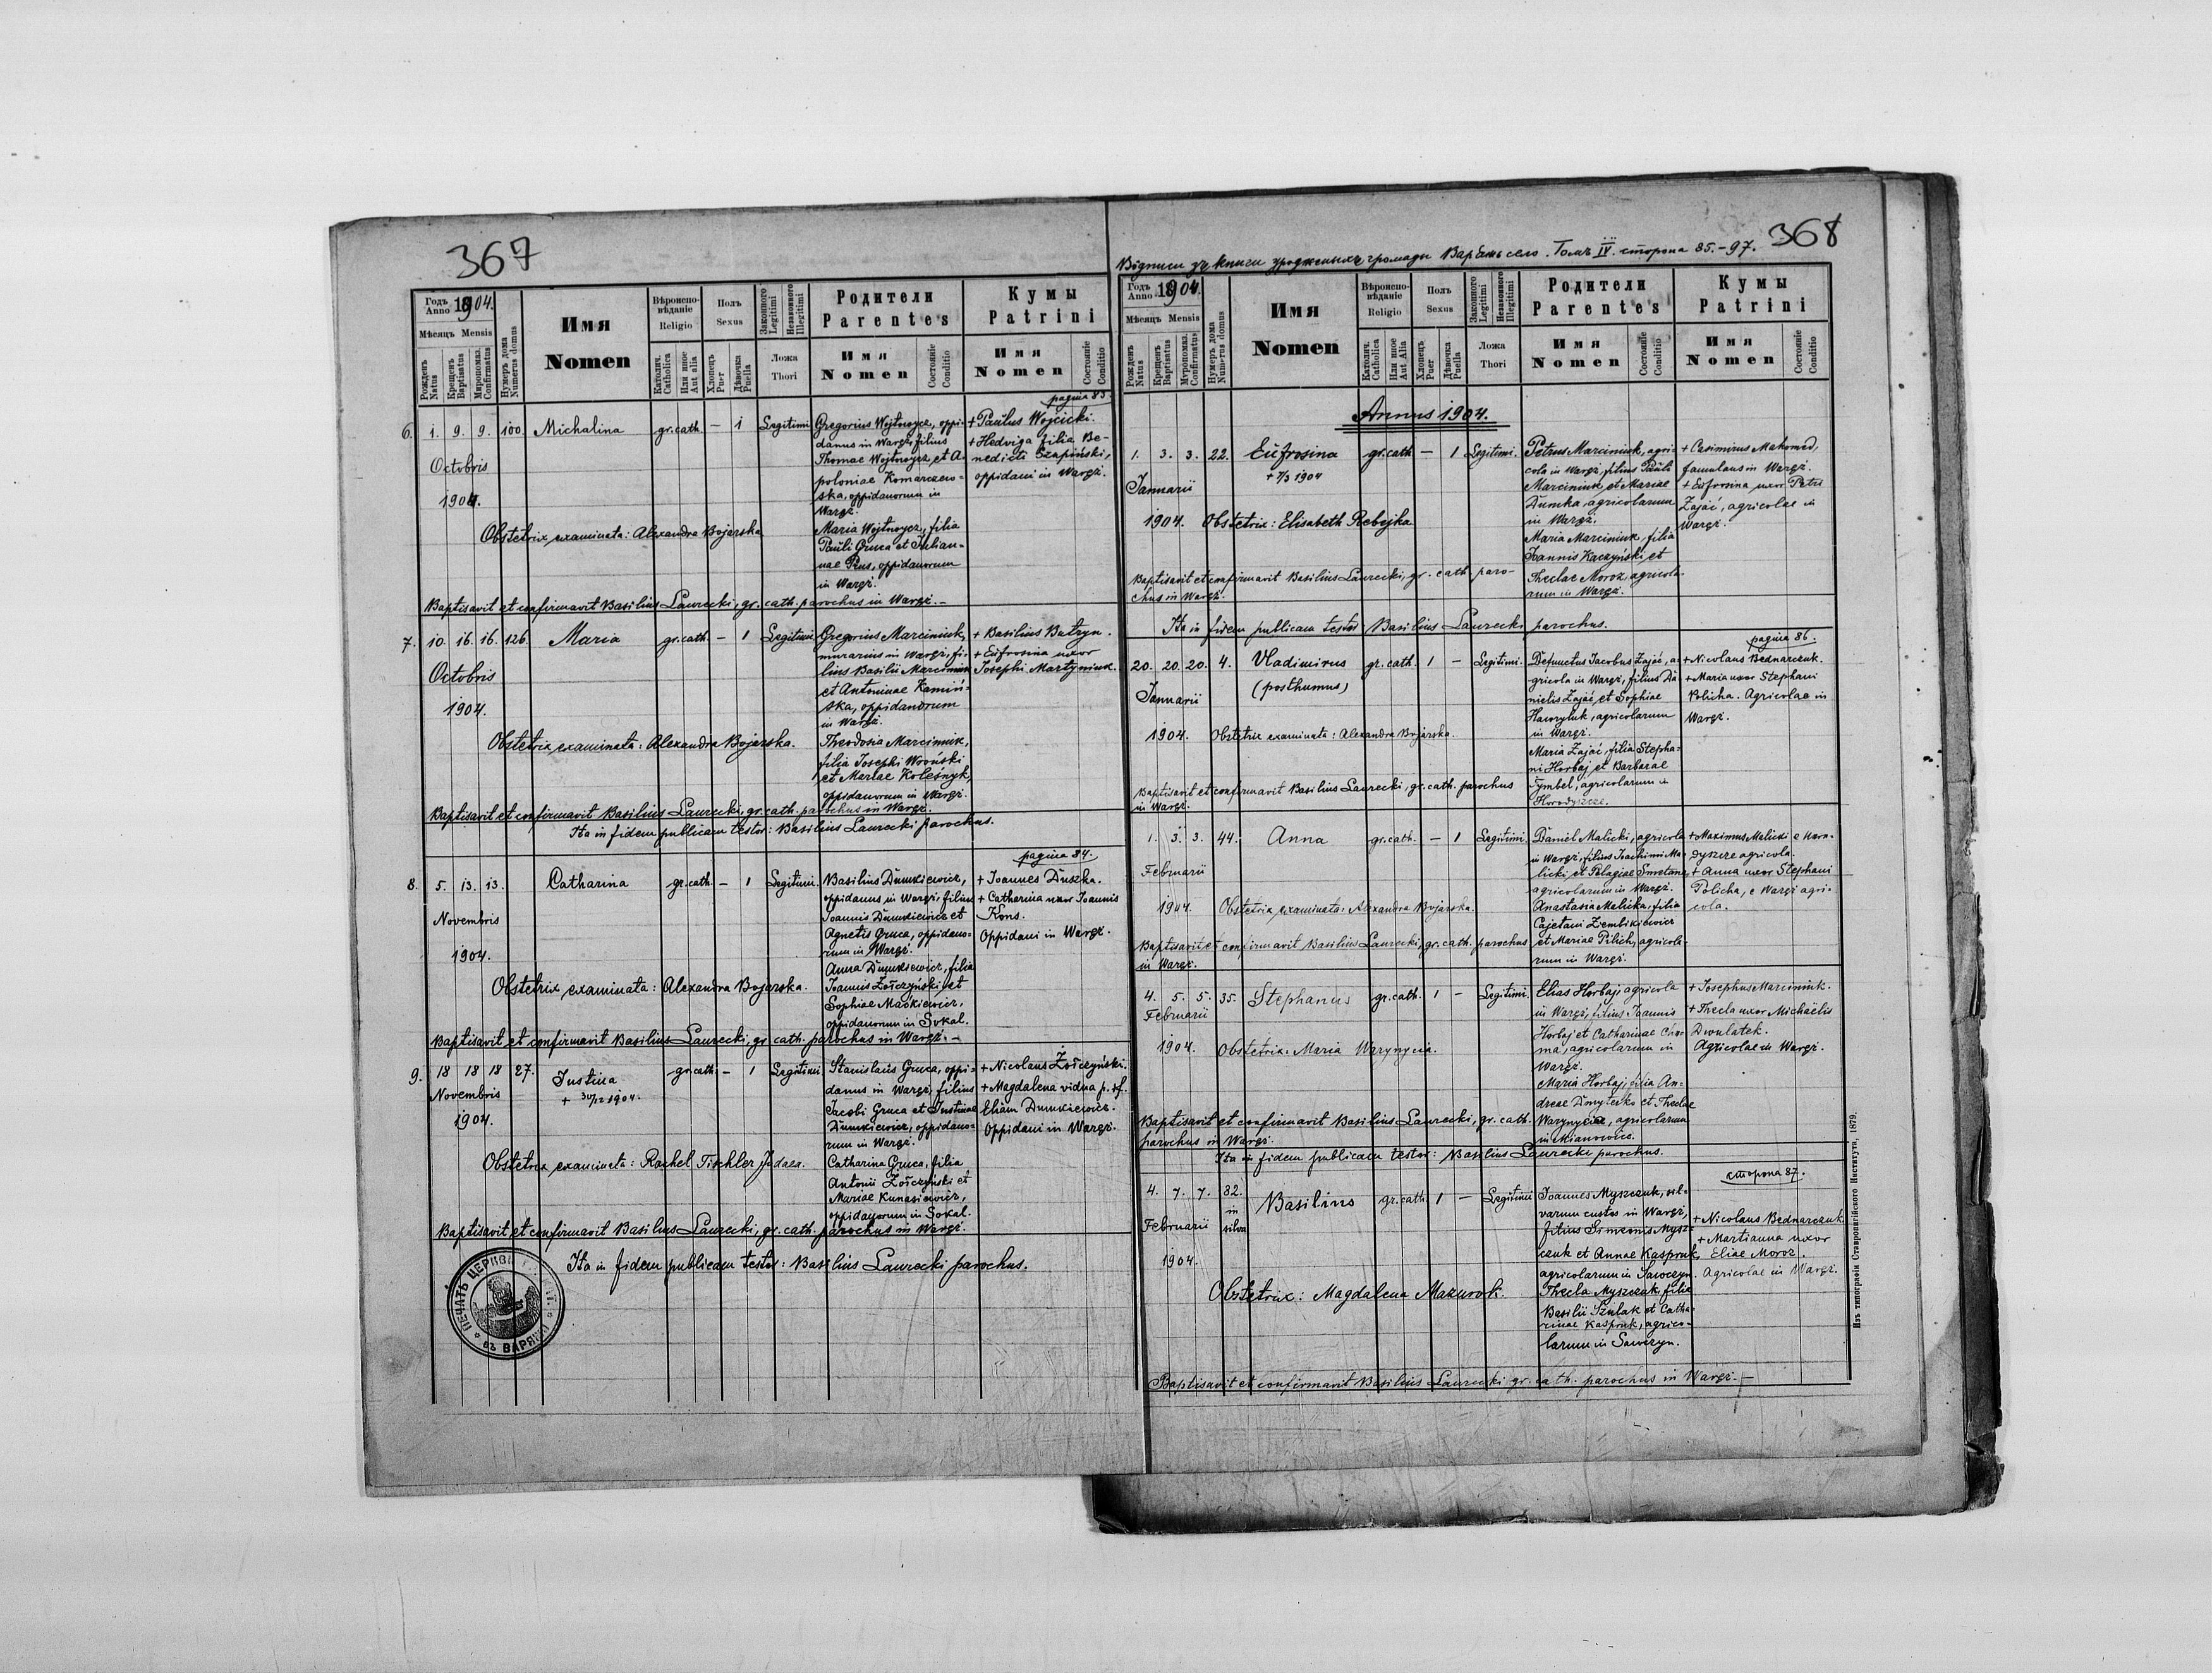 367
Годъ Anno 1904.
Мѣсяцъ Mensis
Рожденъ Natus
Крещенъ Baptisatus
Миропомаз. Confirmatus
Нумеръ дома Numerus domus
Имя
Nomen
Вѣроиспо-
вѣданіе
Religio
Католич. Catholica
Или иное Aut alia
Полъ
Sexus
Хлопецъ Puer
Дѣвочка Puella
Законного Legitimi
Незаконного Illegitimi
Ложа
Thori
Родители
Parentes
Имя
Nomen
Состояніе Conditio
Кумы
Patrini
Имя
Nomen
Состояніе Conditio
pagina 83.
6. 1. 9. 9. 100. Michalina gr.cath. – 1 Legitimi
Octobris
1904.
Gregorius Wojtowycz, oppi-
danus in Waręż, filius
Thomae Wojtowycz et A-
poloniae Komarczew-
ska, oppidanorum in
Waręż.
Maria Wojtowycz, filia
Pauli Gruca et Julian-
nae Prus, oppidanorum
in Waręż.
+ Paulus Wojcicki.
+ Hedviga filia Be-
nedicti Szapiński,
oppidani in Waręż.
Obstetrix examinata: Alexandra Bojarska
Baptisavit et confirmavit Basilius Laurecki, gr. cath. parochus in Waręż. –
7. 10. 16. 16. 126. Maria gr.cath. – 1 Legitimi
Octobris
1904.
Gregorius Marciniuk,
murarius in Waręż, fi-
lius Basilii Marciniuk
et Antoninae Kamiń-
ska, oppidanorum
in Waręż.
Theodosia Marciniuk,
filia Josephi Wroński
et Mariae Koleśnyk,
oppidanorum in Waręż.
+ Basilius Butryn.
+ Eufrosina uxor
Josephi Martyniuk.
Obstetrix examinata: Alexandra Bojarska.
Baptisavit et confirmavit Basilius Laurecki, gr. cath. parochus in Waręż.
Ita in fidem publicam testor: Basilius Laurecki parochus.
pagina 84.
8. 5. 13. 13. Catharina gr.cath. – 1 Legitimi.
Novembris
1904.
Basilius Dumkiewicz,
oppidanus in Waręż, filius
Joannis Dumkiewicz et
Agnetis Gruca, oppidano-
rum in Waręż.
Anna Dumkiewicz, filia
Joannis Zoiczyński et
Sophiae Mackiewicz,
oppidanorum in Sokal.
+ Joannes Duszka.
+ Catharina uxor Joannis
Kons.
Oppidani in Waręż.
Obstetrix examinata: Alexandra Bojarska.
Baptisavit et confirmavit Basilius Laurecki, gr. cath. parochus in Waręż. –
9. 18 18 18 27. Justina gr.cath. – 1 Legitimi
Novembris + 30/12 1904.
1904.
Stanislaus Gruca, oppi-
danus in Waręż, filius
Jacobi Gruca et Justinae
Dumkiewicz, oppidano-
rum in Waręż.
Catharina Gruca, filia
Antonii Zoiczyński et
Mariae Kunasiewicz,
oppidanorum in Sokal.
+ Nicolaus Zoiczyński.
+ Magdalena vidua p. def.
Eliam Dumkiewicz.
Oppidani in Waręż.
Obstetrix examinata: Rachel Tischler Judaea.
Baptisavit et confirmavit Basilius Laurecki, gr. cath. parochus in Waręż.
Ita in fidem publicam testor: Basilius Laurecki parochus.
ПЕЧАТЬ ЦЕРКВИ
въ ВАРЯЖИ
368
Вôдписи зъ книги урожденыхъ громады Варяжъ село. Томъ IV. сторона 85.-97.
Годъ Anno 1904.
Мѣсяцъ Mensis
Рожденъ Natus
Крещенъ Baptisatus
Мѵропомаз. Confirmatus
Нумеръ дома Numerus domus
Имя
Nomen
Вѣроиспо-
вѣданіе
Religio
Католич. Catholica
Или иное Aut. Alia
Полъ
Sexus
Хлопецъ Puer
Дѣвочка Puella
Законного Legitimi
Незаконного Illegitimi
Ложа
Thori
Родители
Parentes
Имя
Nomen
Состояніе Conditio
Кумы
Patrini
Имя
Nomen
Состояніе Conditio
Annus 1904.
1. 3. 3. 22. Eufrosina gr.cath. – 1 Legitimi.
Januarii + 7/3 1904
1904. Obstetrix: Elisabeth Rebejka
Petrus Marciniuk, agri-
cola in Waręż, filius Pauli
Marciniuk et Mariae
Dumka, agricolarum
in Waręż.
Maria Marciniuk, filia
Joannis Kaczyński et
Theclae Moroz agricola-
rum in Waręż.
+ Casimirus Makomed,
famulans in Waręż.
+ Eufrosina uxor Petri
Zając, agricolae in
Waręż.
Baptisavit et confirmavit Basilius Laurecki, gr. cath. paro-
chus in Waręż.
Ita in fidem publicam testor: Basilius Laurecki parochus.
pagina 86.
20. 20. 20. 4. Vladimirus gr.cath. 1 – Legitimi.
Januarii (posthumus)
1904. Obstetrix examinata: Alexandra Bojarska.
Defunctus Jacobus Zając, a-
gricola in Waręż, filius Da-
nielis Zając et Sophiae
Hawryluk, agricolarum
in Waręż.
Maria Zając, filia Stepha-
ni Horbaj et Barbarae
Cymbel, agricolarum in
Horodyszcze.
+ Nicolaus Bednarczuk.
+ Maria uxor Stephani
Policha. Agricolae in
Waręż.
Baptisavit et confirmavit Basilius Laurecki, gr. cath. parochus
in Waręż.
1. 3. 3. 44. Anna gr.cath. – 1 Legitimi.
Februarii
1904. Obstetrix examinata: Alexandra Bojarska.
Daniel Malicki, agricola
in Waręż, filius Joachimi Ma-
licki et Pelagiae Smetana
agricolarum in Waręż.
Anastasia Malicka, filia
Cajetani Zembikiewicz
et Mariae Pilich, agricola-
rum in Waręż.
+ Maximus Malicki e Horo-
dyszcze agricola.
+ Anna uxor Stephani
Policha, e Waręż agri-
cola.
Baptisavit et confirmavit Basilius Laurecki, gr. cath. parochus
in Waręż.
4. 5. 5. 35. Stephanus gr.cath. 1 – Legitimi.
Februarii
1904. Obstetrix: Maria Warynycia.
Elias Horbaj, agricola
in Waręż, filius Joannis
Horbaj et Catharinae Cho-
ma, agricolarum in
Waręż.
Maria Horbaj, filia An-
dreae Dmyterko et Theclae
Warynycia, agricolarum
in Mianowice.
+ Josephus Marciniuk.
+ Thecla uxor Michaëlis
Dwulatek.
Agricolae in Waręż.
Baptisavit et confirmavit Basilius Laurecki, gr. cath.
parochus in Waręż.
Ita in fidem publicam testor: Basilius Laurecki parochus.
сторона 87.
4. 7. 7. 82. Basilius gr.cath. 1 – Legitimi
in
Februarii silva
1904.
Joannes Myszczuk, sil-
varum custos in Waręż,
filius Simeonis Mysz-
czuk et Annae Kaspruk,
agricolarum in Sawczyn.
Thecla Myszczuk filia
Basilii Szulak et Catha-
rinae Kaspruk, agrico-
larum in Sawczyn.
+ Nicolaus Bednarczuk
+ Martianna uxor
Eliae Moroz.
Agricolae in Waręż.
Obstetrix: Magdalena Mazurok.
Baptisavit et confirmavit Basilius Laurecki gr. cath. parochus in Waręż. –
Изъ типографіи Ставропигійского Института, 1879.